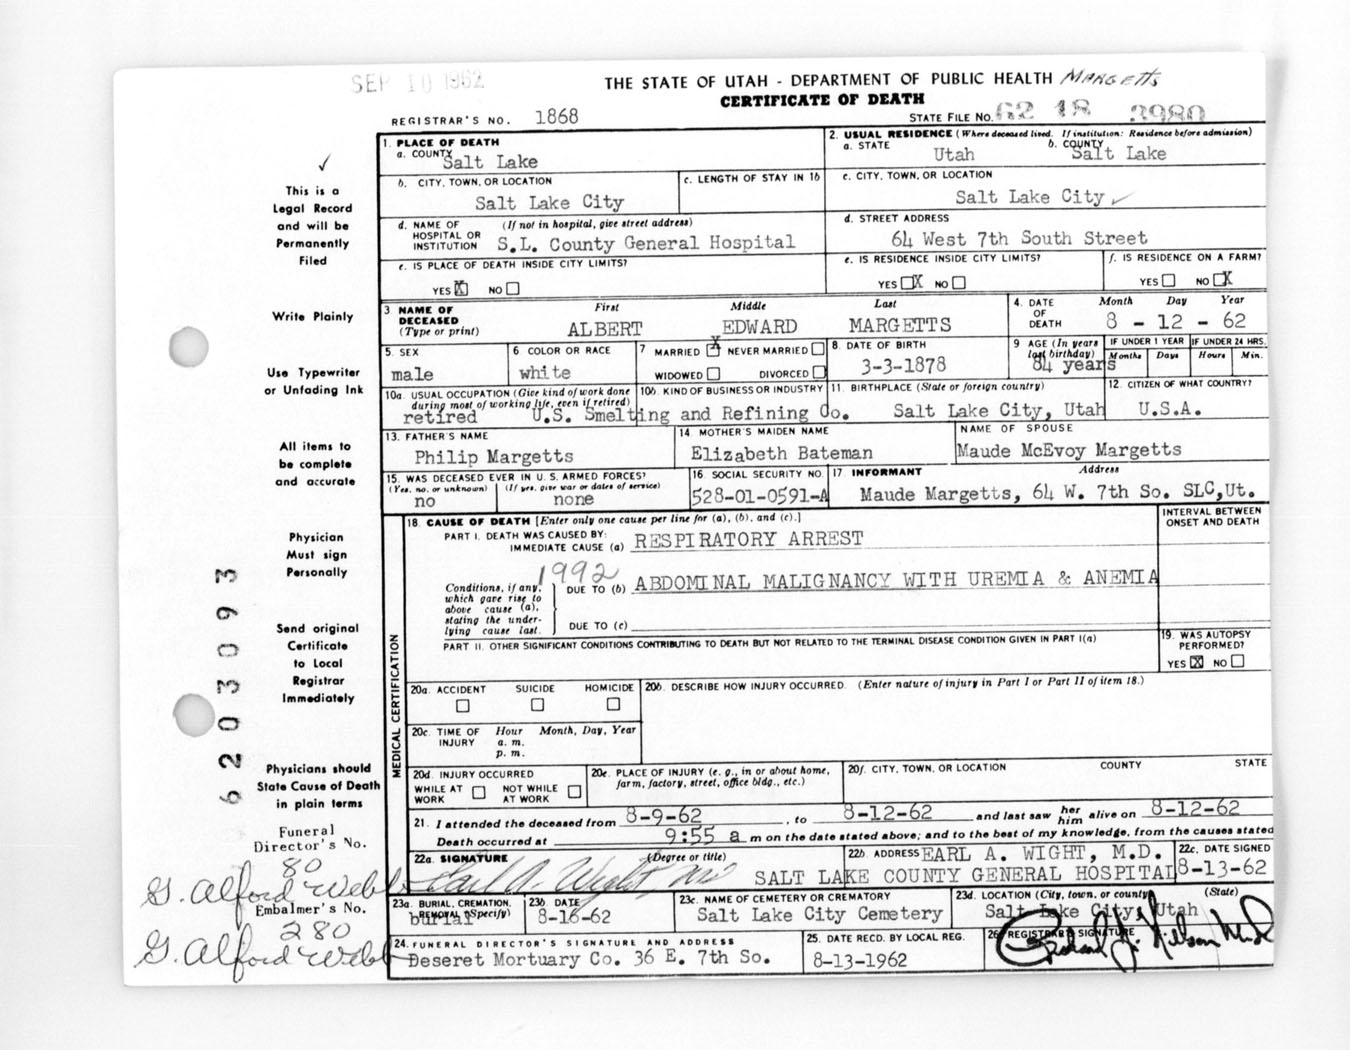 SEP 10 1962
THE STATE OF UTAH - DEPARTMENT OF PUBLIC HEALTH Margetts
CERTIFICATE OF DEATH
REGISTRAR'S NO. 1868
STATE FILE NO. 62 18 3980
✓
This is a
Legal Record
and will be
Permanently
Filed
Write Plainly
Use Typewriter
or Unfading Ink
All items to
be complete
and accurate
Physician
Must sign
Personally
Send original
Certificate
to Local
Registrar
Immediately
Physicians should
State Cause of Death
in plain terms
Funeral
Director's No.
80
G. Alford Webb
Embalmer's No.
280
G. Alford Webb
6203093
1. PLACE OF DEATH
a. COUNTY Salt Lake
2. USUAL RESIDENCE (Where deceased lived. If institution: Residence before admission)
a. STATE Utah b. COUNTY Salt Lake
b. CITY, TOWN, OR LOCATION Salt Lake City
c. LENGTH OF STAY IN 1b
c. CITY, TOWN, OR LOCATION Salt Lake City ✓
d. NAME OF HOSPITAL OR INSTITUTION (If not in hospital, give street address) S.L. County General Hospital
d. STREET ADDRESS 64 West 7th South Street
e. IS PLACE OF DEATH INSIDE CITY LIMITS?
YES X NO
e. IS RESIDENCE INSIDE CITY LIMITS?
YES X NO
f. IS RESIDENCE ON A FARM?
YES NO X
3 NAME OF DECEASED (Type or print)
First Middle Last
ALBERT EDWARD MARGETTS
4. DATE OF DEATH Month Day Year
8 - 12 - 62
5. SEX male
6 COLOR OR RACE white
7 MARRIED X NEVER MARRIED
WIDOWED DIVORCED
8. DATE OF BIRTH 3-3-1878
9 AGE (In years last birthday) 84 years
IF UNDER 1 YEAR Months Days
IF UNDER 24 HRS. Hours Min.
10a. USUAL OCCUPATION (Give kind of work done during most of working life, even if retired) retired
10b. KIND OF BUSINESS OR INDUSTRY U.S. Smelting and Refining Co.
11. BIRTHPLACE (State or foreign country) Salt Lake City, Utah
12. CITIZEN OF WHAT COUNTRY? U.S.A.
13. FATHER'S NAME Philip Margetts
14. MOTHER'S MAIDEN NAME Elizabeth Bateman
NAME OF SPOUSE Maude McEvoy Margetts
15. WAS DECEASED EVER IN U. S. ARMED FORCES?
(Yes, no, or unknown) (If yes, give war or dates of service)
no none
16. SOCIAL SECURITY NO. 528-01-0591-A
17. INFORMANT Address
Maude Margetts, 64 W. 7th So. SLC, Ut.
MEDICAL CERTIFICATION
18. CAUSE OF DEATH [Enter only one cause per line for (a), (b), and (c).]
INTERVAL BETWEEN ONSET AND DEATH
PART I. DEATH WAS CAUSED BY:
IMMEDIATE CAUSE (a) RESPIRATORY ARREST
1992
Conditions, if any, which gave rise to above cause (a), stating the underlying cause last.
DUE TO (b) ABDOMINAL MALIGNANCY WITH UREMIA & ANEMIA
DUE TO (c)
PART II. OTHER SIGNIFICANT CONDITIONS CONTRIBUTING TO DEATH BUT NOT RELATED TO THE TERMINAL DISEASE CONDITION GIVEN IN PART I(a)
19. WAS AUTOPSY PERFORMED?
YES X NO
20a. ACCIDENT SUICIDE HOMICIDE
20b. DESCRIBE HOW INJURY OCCURRED. (Enter nature of injury in Part I or Part II of item 18.)
20c. TIME OF INJURY Hour a. m. p. m. Month, Day, Year
20d. INJURY OCCURRED
WHILE AT WORK NOT WHILE AT WORK
20e. PLACE OF INJURY (e. g., in or about home, farm, factory, street, office bldg., etc.)
20f. CITY, TOWN, OR LOCATION COUNTY STATE
21. I attended the deceased from 8-9-62, to 8-12-62 and last saw her him alive on 8-12-62
Death occurred at 9:55 a m on the date stated above; and to the best of my knowledge, from the causes stated
22a. SIGNATURE (Degree or title)
Earl A. Wight MD
22b. ADDRESS EARL A. WIGHT, M.D.
SALT LAKE COUNTY GENERAL HOSPITAL
22c. DATE SIGNED 8-13-62
23a. BURIAL, CREMATION, REMOVAL (Specify) burial
23b. DATE 8-16-62
23c. NAME OF CEMETERY OR CREMATORY Salt Lake City Cemetery
23d. LOCATION (City, town, or county) (State)
Salt Lake City, Utah
24. FUNERAL DIRECTOR'S SIGNATURE AND ADDRESS
Deseret Mortuary Co. 36 E. 7th So.
25. DATE RECD. BY LOCAL REG. 8-13-1962
26 REGISTRAR'S SIGNATURE